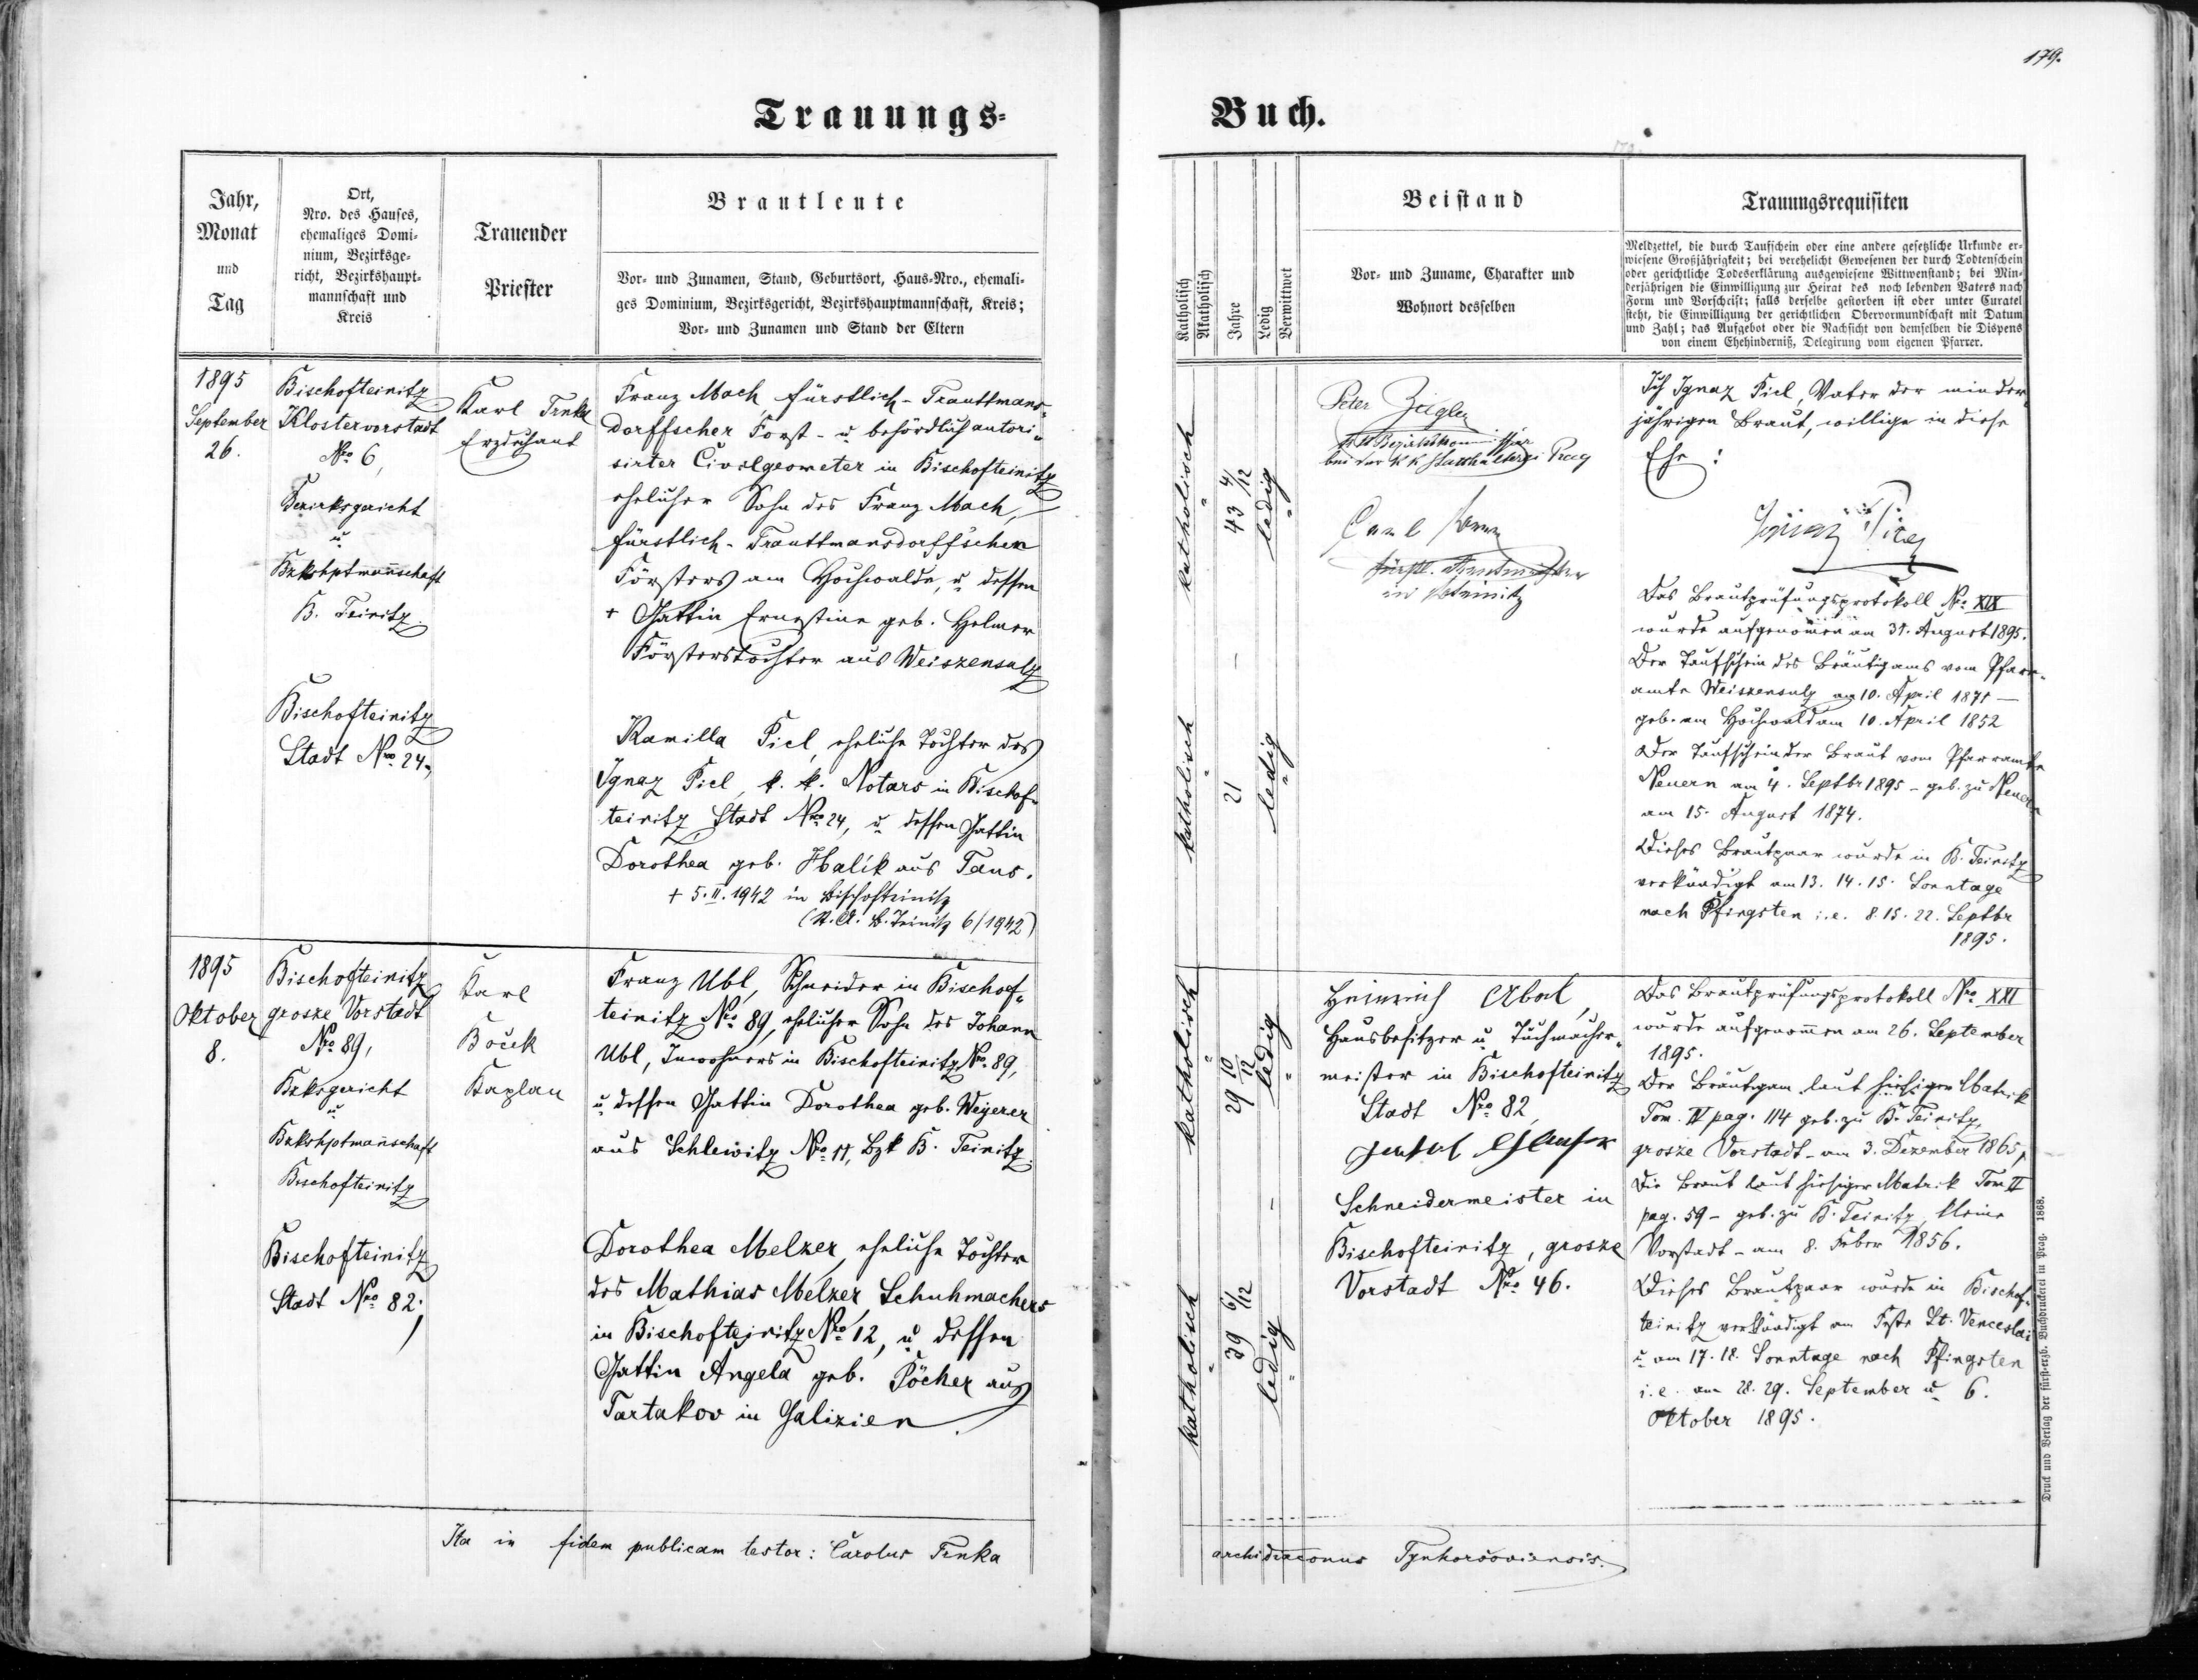 179.
Trauungs-
Buch.
Jahr,
Monat
und
Tag
Ort,
Nro. des Hauses,
ehemaliges Domi-
nium, Bezirksge-
richt, Bezirkshaupt-
mannschaft und
Kreis
Trauender
Priester
Brautleute
Vor- und Zunamen, Stand, Geburtsort, Haus-Nro., ehemali-
ges Dominium, Bezirksgericht, Bezirkshauptmannschaft, Kreis;
Vor- und Zunamen und Stand der Eltern
Katholisch
Akatholisch
Jahre
Ledig
Verwittwet
Beistand
Vor- und Zuname, Charakter und
Wohnort desselben
Trauungsrequisiten
Meldzettel, die durch Taufschein oder eine andere gesetzliche Urkunde er-
wiesene Großjährigkeit; bei verehelicht Gewesenen der durch Todtenschein
oder gerichtliche Todeserklärung ausgewiesene Wittwenstand; bei Min-
derjährigen die Einwilligung zur Heirat des noch lebenden Vaters nach
Form und Vorschrift; falls derselbe gestorben ist oder unter Curatel
steht, die Einwilligung der gerichtlichen Obervormundschaft mit Datum
und Zahl; das Aufgebot oder die Nachsicht von demselben die Dispens
von einem Ehehinderniß, Delegirung vom eigenen Pfarrer.
1895
September
26.
Bischofteinitz
Klostervorstadt
Nro 6,
Bezirksgericht
u
Bzkshptmannschaft
B. Teinitz.
Bischofteinitz
Stadt Nro 24.
Karl Trnka
Erzdechant
Franz Mach, fürstlich-Trauttmans-
dorffscher Forst- u behördlich autori-
sirter Civilgeometer in Bischofteinitz
ehelicher Sohn des Franz Mach,
fürstlich-Trauttmansdorff'schen
Försters am Hochwalde, u dessen
+ Gattin Ernestine geb. Helmer
Försterstochter aus Weiszensulz
Kamilla Picl, eheliche Tochter des
Ignaz Picl, k. k. Notars in Bischof-
teinitz, Stadt Nro 24, u dessen Gattin
Dorothea geb. Halík aus Taus.
+ 5. II. 1942 in Bischofteinitz
(St. A. B. Teinitz 6/1942)
katholisch
43 4/12
ledig
katholisch
21
ledig
Peter Ziegler
k k Bezirkskommissär
bei der k k Statthalterei Prag
Carl
in B.teinitz
Ich Ignaz Picl, Vater der minder-
jährigen Braut, willige in diese
Ehe:
Ignaz Picl
Das Brautprüfungsprotokoll Nro XIX
wurde aufgenommen am 31. August 1895.
Der Taufschein des Bräutigams vom Pfarr-
amte Weiszensulz am 10. April 1871 —
geb. am Hochwald am 10. April 1852
Der Taufschein der Braut vom Pfarramte
Neuern am 4. Septbr 1895 – geb. zu Neuern
am 15. August 1874.
Dieses Brautpaar wurde in B. Teinitz
verkündigt am 13. 14. 15. Sonntage
nach Pfingsten i. e. 8. 15. 22. Septbr
1895.
1895
Oktober
8.
Bischofteinitz
grosze Vorstadt
Nro 89,
Bzksgericht
u
Bzkshptmannschaft
Bischofteinitz
Bischofteinitz
Stadt Nro 82;
Karl
Boček
Kaplan
Franz Ubl, Schneider in Bischof-
teinitz Nro 89, ehelicher Sohn des Johann
Ubl, Inwohners in Bischofteinitz Nro 89,
u dessen Gattin Dorothea geb. Weyerer
aus Schlewitz Nro 11, Bzk B. Teinitz.
Dorothea Melzer, eheliche Tochter
des Mathias Melzer, Schuhmachers
in Bischofteinitz Nro 12, u dessen
Gattin Angela geb. Pöcher aus
Tartakov in Galizien.
katholisch
29 10/12
ledig
katholisch
39 6/12
ledig
Heinrich
Hausbesitzer u Tuchmacher-
meister in Bischofteinitz
Stadt Nro 82,
Schneidermeister in
Bischofteinitz, grosze
Vorstadt Nro 46.
Das Brautprüfungsprotokoll Nro XXI
wurde aufgenommen am 26. September
1895.
Der Bräutigam laut hiesiger Matrik
Tom. IV pag. 114 geb. zu B. Teinitz,
grosze Vorstadt – am 3. Dezember 1865,
Die Braut laut hiesiger Matrik Tom II
pag. 59 – geb. zu B. Teinitz, kleine
Vorstadt – am 8. Feber 1856.
Dieses Brautpaar wurde in Bischof-
teinitz verkündigt am Feste St. Venceslai
u am 17. 18. Sonntage nach Pfingsten
i. e. am 28. 29. September u 6.
Oktober 1895.
Ita in fidem publicam testor: Carolus Trnka
archidiaconus Tynhoršoviensis.
Druck und Verlag der fürst-erzb. Buchdruckerei in Prag. 1868.